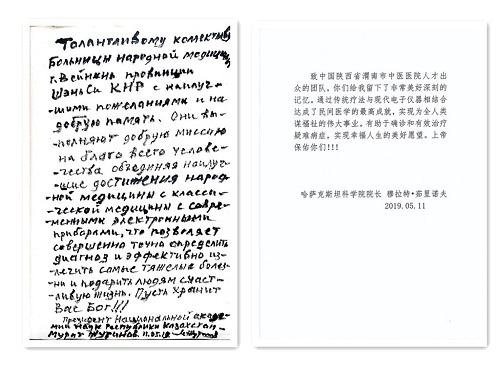 Талантливому колективу
Больницы народной медицины
г. Вейнань провинции
ШэньСи КНР с наилуч-
шими пожеланиями и на
добрую память. Они вы-
полняют доброую миссию
на благо всего челове-
чества объединяя наилуч-
шие достижения народ-
ной медицины с класси-
ческой медицины с совре-
менными электронными
приборами, что позволяет
совершенно точно определить
диагноз и эффективно из-
лечить самые тяжелые болез-
ни и подарить людям счаст-
ливую жизнь. Пусть хранит
Вас Бог!!!
Президент Национальной акаде-
мии наук Республики Казахстан
Мурат Журинов. 11.05.19
致中国陕西省渭南市中医医院人才出
众的团队。你们给我留下了非常美好深刻的
记忆。通过传统疗法与现代电子仪器相结合
达成了民间医学的最高成就，实现为全人类
谋福祉的伟大事业。有助于确诊和有效治疗
疑难病症，实现幸福人生的美好愿望。上帝
保佑你们!!!
哈萨克斯坦科学院院长 穆拉特·茹里诺夫
2019.05.11